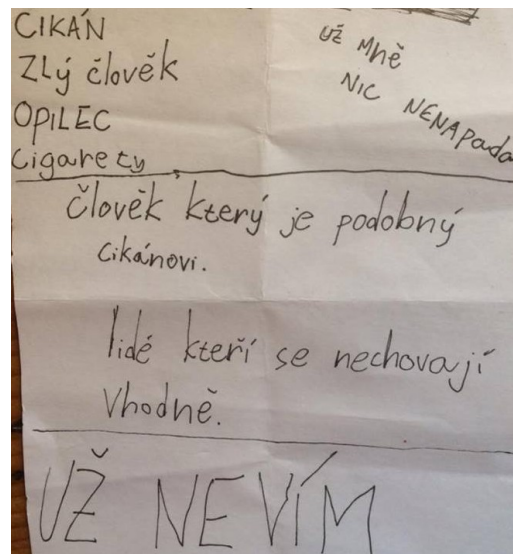 CIKÁN
Zlý člověk
OPILEC
Cigarety
už mně
NIC NENAPadá
člověk který je podobný
cikánovi.
lidé kteří se nechovají
vhodně.
UŽ NEVÍM